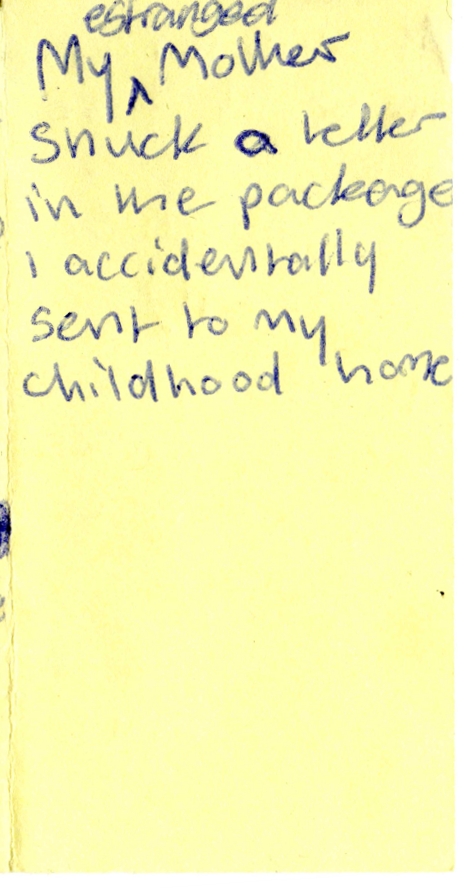 estranged
My ^ Mother
snuck a letter
in the package
i accidentally
sent to my
childhood home